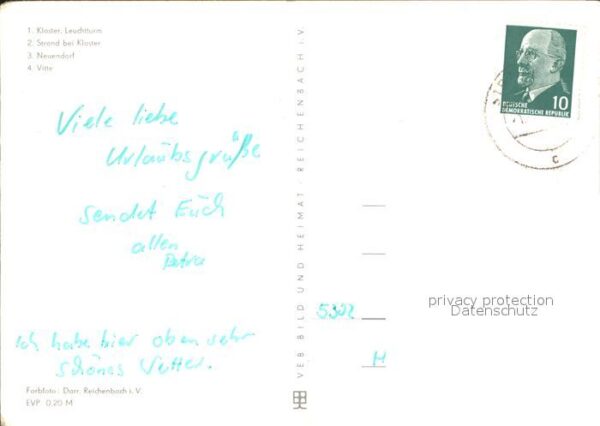 1. Kloster, Leuchtturm
2. Strand bei Kloster
3. Neuendorf
4. Vitte
Viele liebe
Urlaubsgrüße
sendet Euch
allen
Petra
Ich habe hier oben sehr
schönes Wetter.
Farbfoto: Darr, Reichenbach i. V.
EVP 0,20 M
VEB BILD UND HEIMAT · REICHENBACH i. V.
10
DEUTSCHE
DEMOKRATISCHE REPUBLIK
c
5302
H
privacy protection
Datenschutz